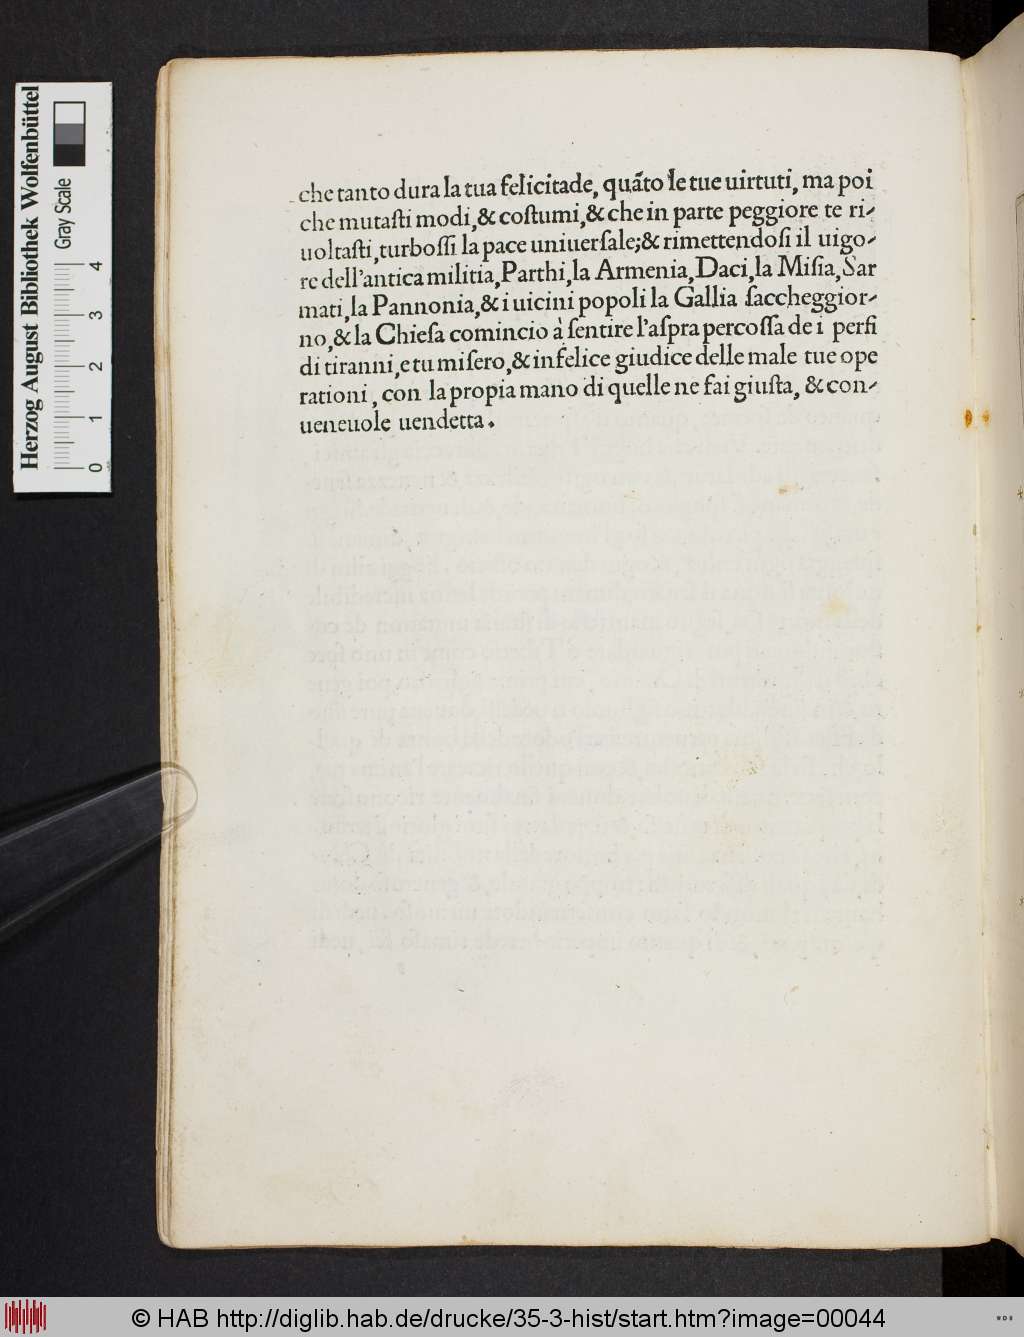 Herzog August Bibliothek Wolfenbüttel
Gray Scale
0 1 2 3 4
che tanto dura la tua felicitade, quãto le tue uirtuti, ma poi
che mutaſti modi, & coſtumi, & che in parte peggiore te ri-
uoltaſti, turboſſi la pace uniuerſale; & rimettendoſi il uigo-
re dell'antica militia, Parthi, la Armenia, Daci, la Miſia, Sar
mati, la Pannonia, & i uicini popoli la Gallia ſaccheggior-
no, & la Chieſa comincio à ſentire l'aſpra percoſſa de i perfi
di tiranni, e tu miſero, & infelice giudice delle male tue ope
rationi, con la propia mano di quelle ne fai giuſta, & con-
ueneuole uendetta.
© HAB http://diglib.hab.de/drucke/35-3-hist/start.htm?image=00044